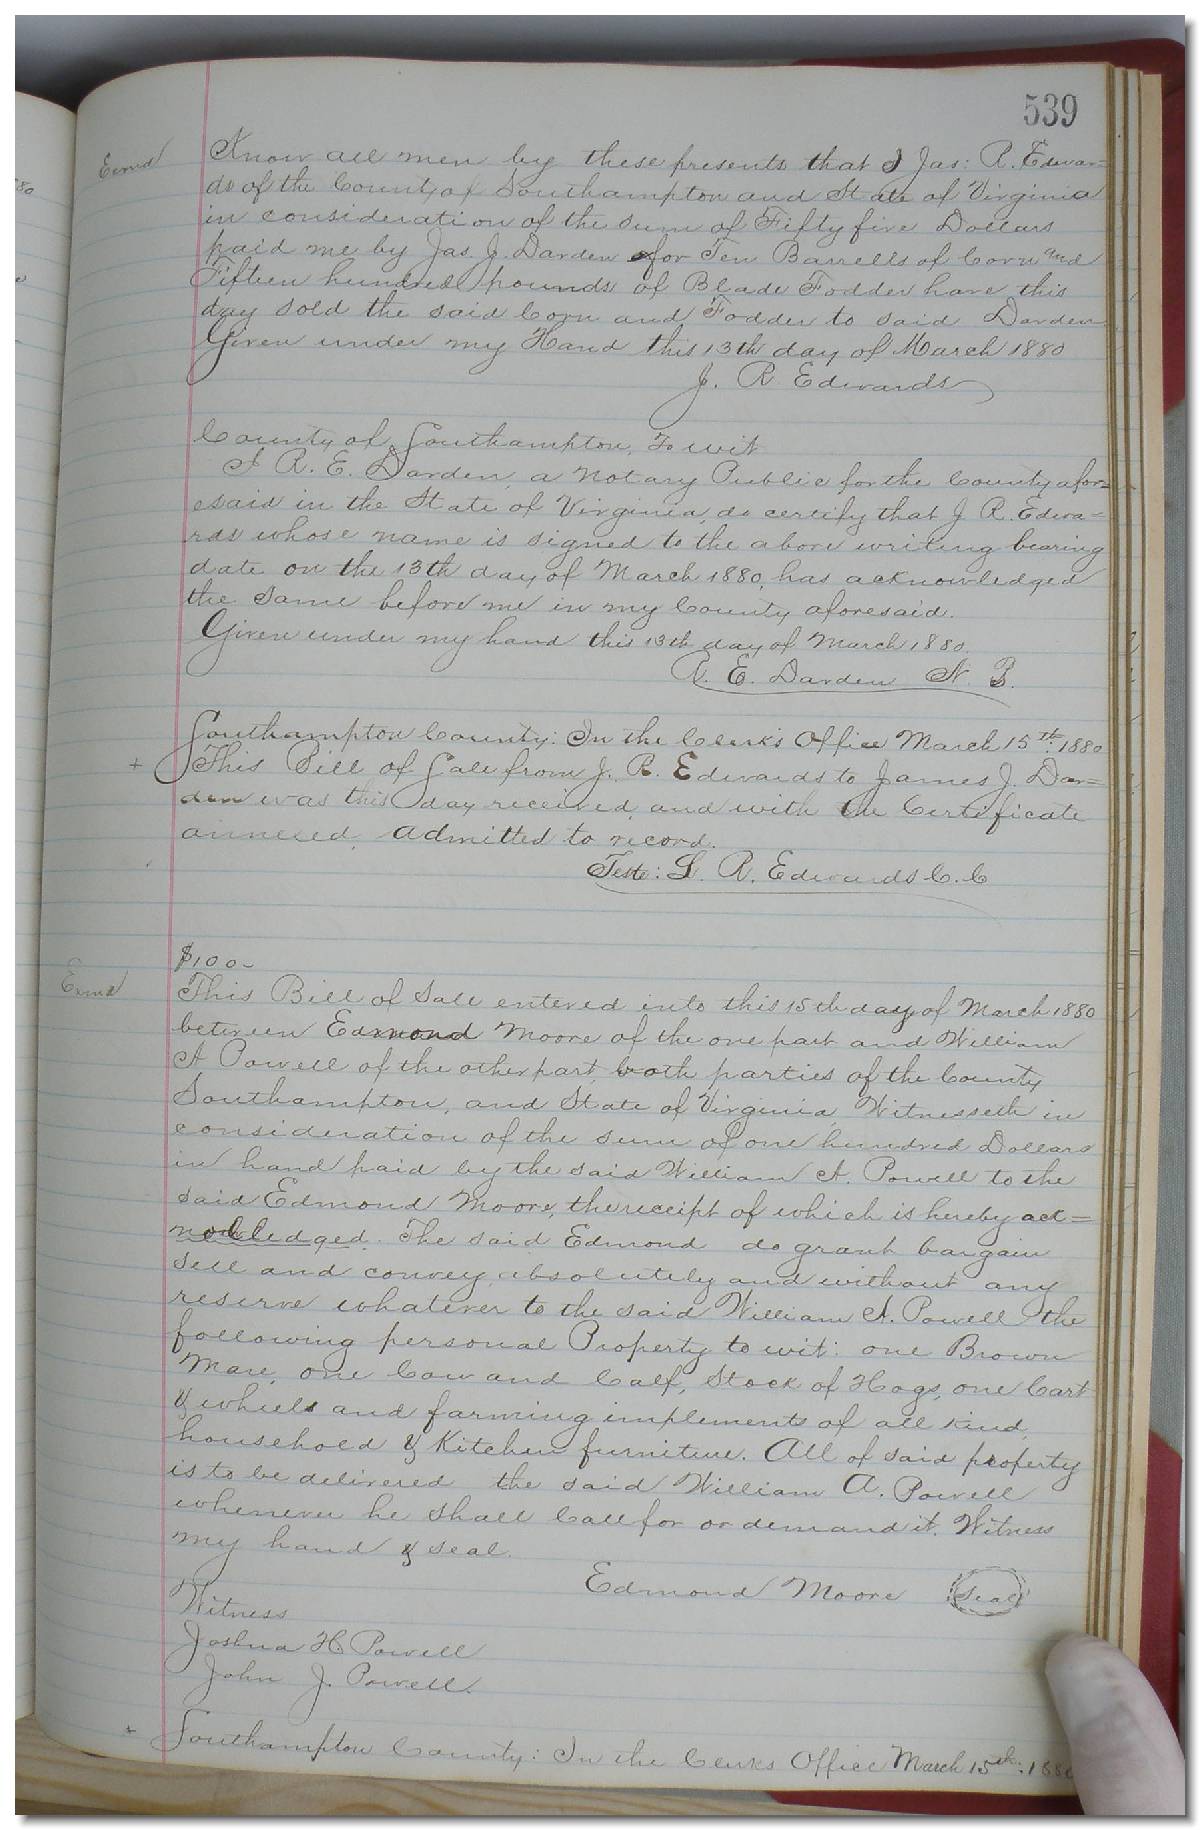 539
Exmd
Know all men by these presents that I Jas: R. Edwar=
ds of the County of Southampton and State of Virginia
in consideration of the sum of Fifty five Dollars
paid me by Jas. J. Darden for Ten Barrells of Corn and
Fifteen hundred pounds of Blade Fodder have this
day sold the said Corn and Fodder to said Darden
Given under my Hand this 13th day of March 1880
J. R Edwards
County of Southampton, To wit
I R. E. Darden, a Notary Public for the County afor=
esaid in the State of Virginia, do certify that J R. Edwa=
rds whose name is signed to the above writing bearing
date on the 13th day of March 1880, has acknowledged
the same before me in my County aforesaid.
Given under my hand this 13th day of March 1880.
R. E. Darden N. P.
Southampton County: In the Clerk's Office March 15th. 1880
+ This Bill of Sale from J. R. Edwards to James J. Dar=
den was this day received, and with the Certificate
annexed, admitted to record.
Teste: L. R. Edwards C. C
$100-
Exmd
This Bill of Sale entered into this 15th day of March 1880
between Edmond Moore of the one part and William
A Powell of the other part, both parties of the County
Southampton, and State of Virginia, Witnesseth in
consideration of the sum of one hundred Dollars
in hand paid by the said William A. Powell to the
said Edmond Moore, the receipt of which is hereby ack=
nolledged. The said Edmond do grant bargain
sell and convey, absolutely and without any
reserve whatever to the said William A. Powell the
following personal Property to wit: one Brown
Mare, one Cow and Calf, Stock of Hogs, one Cart
& wheels and farming implements of all kind,
household & Kitchen furniture. All of said property
is to be delivered the said William A. Powell
whenever he shall Call for or demand it. Witness
my hand & seal.
Edmond Moore Seal
Witness
Joshua H. Powell
John J. Powell.
+ Southampton County: In the Clerks Office March 15th. 1880